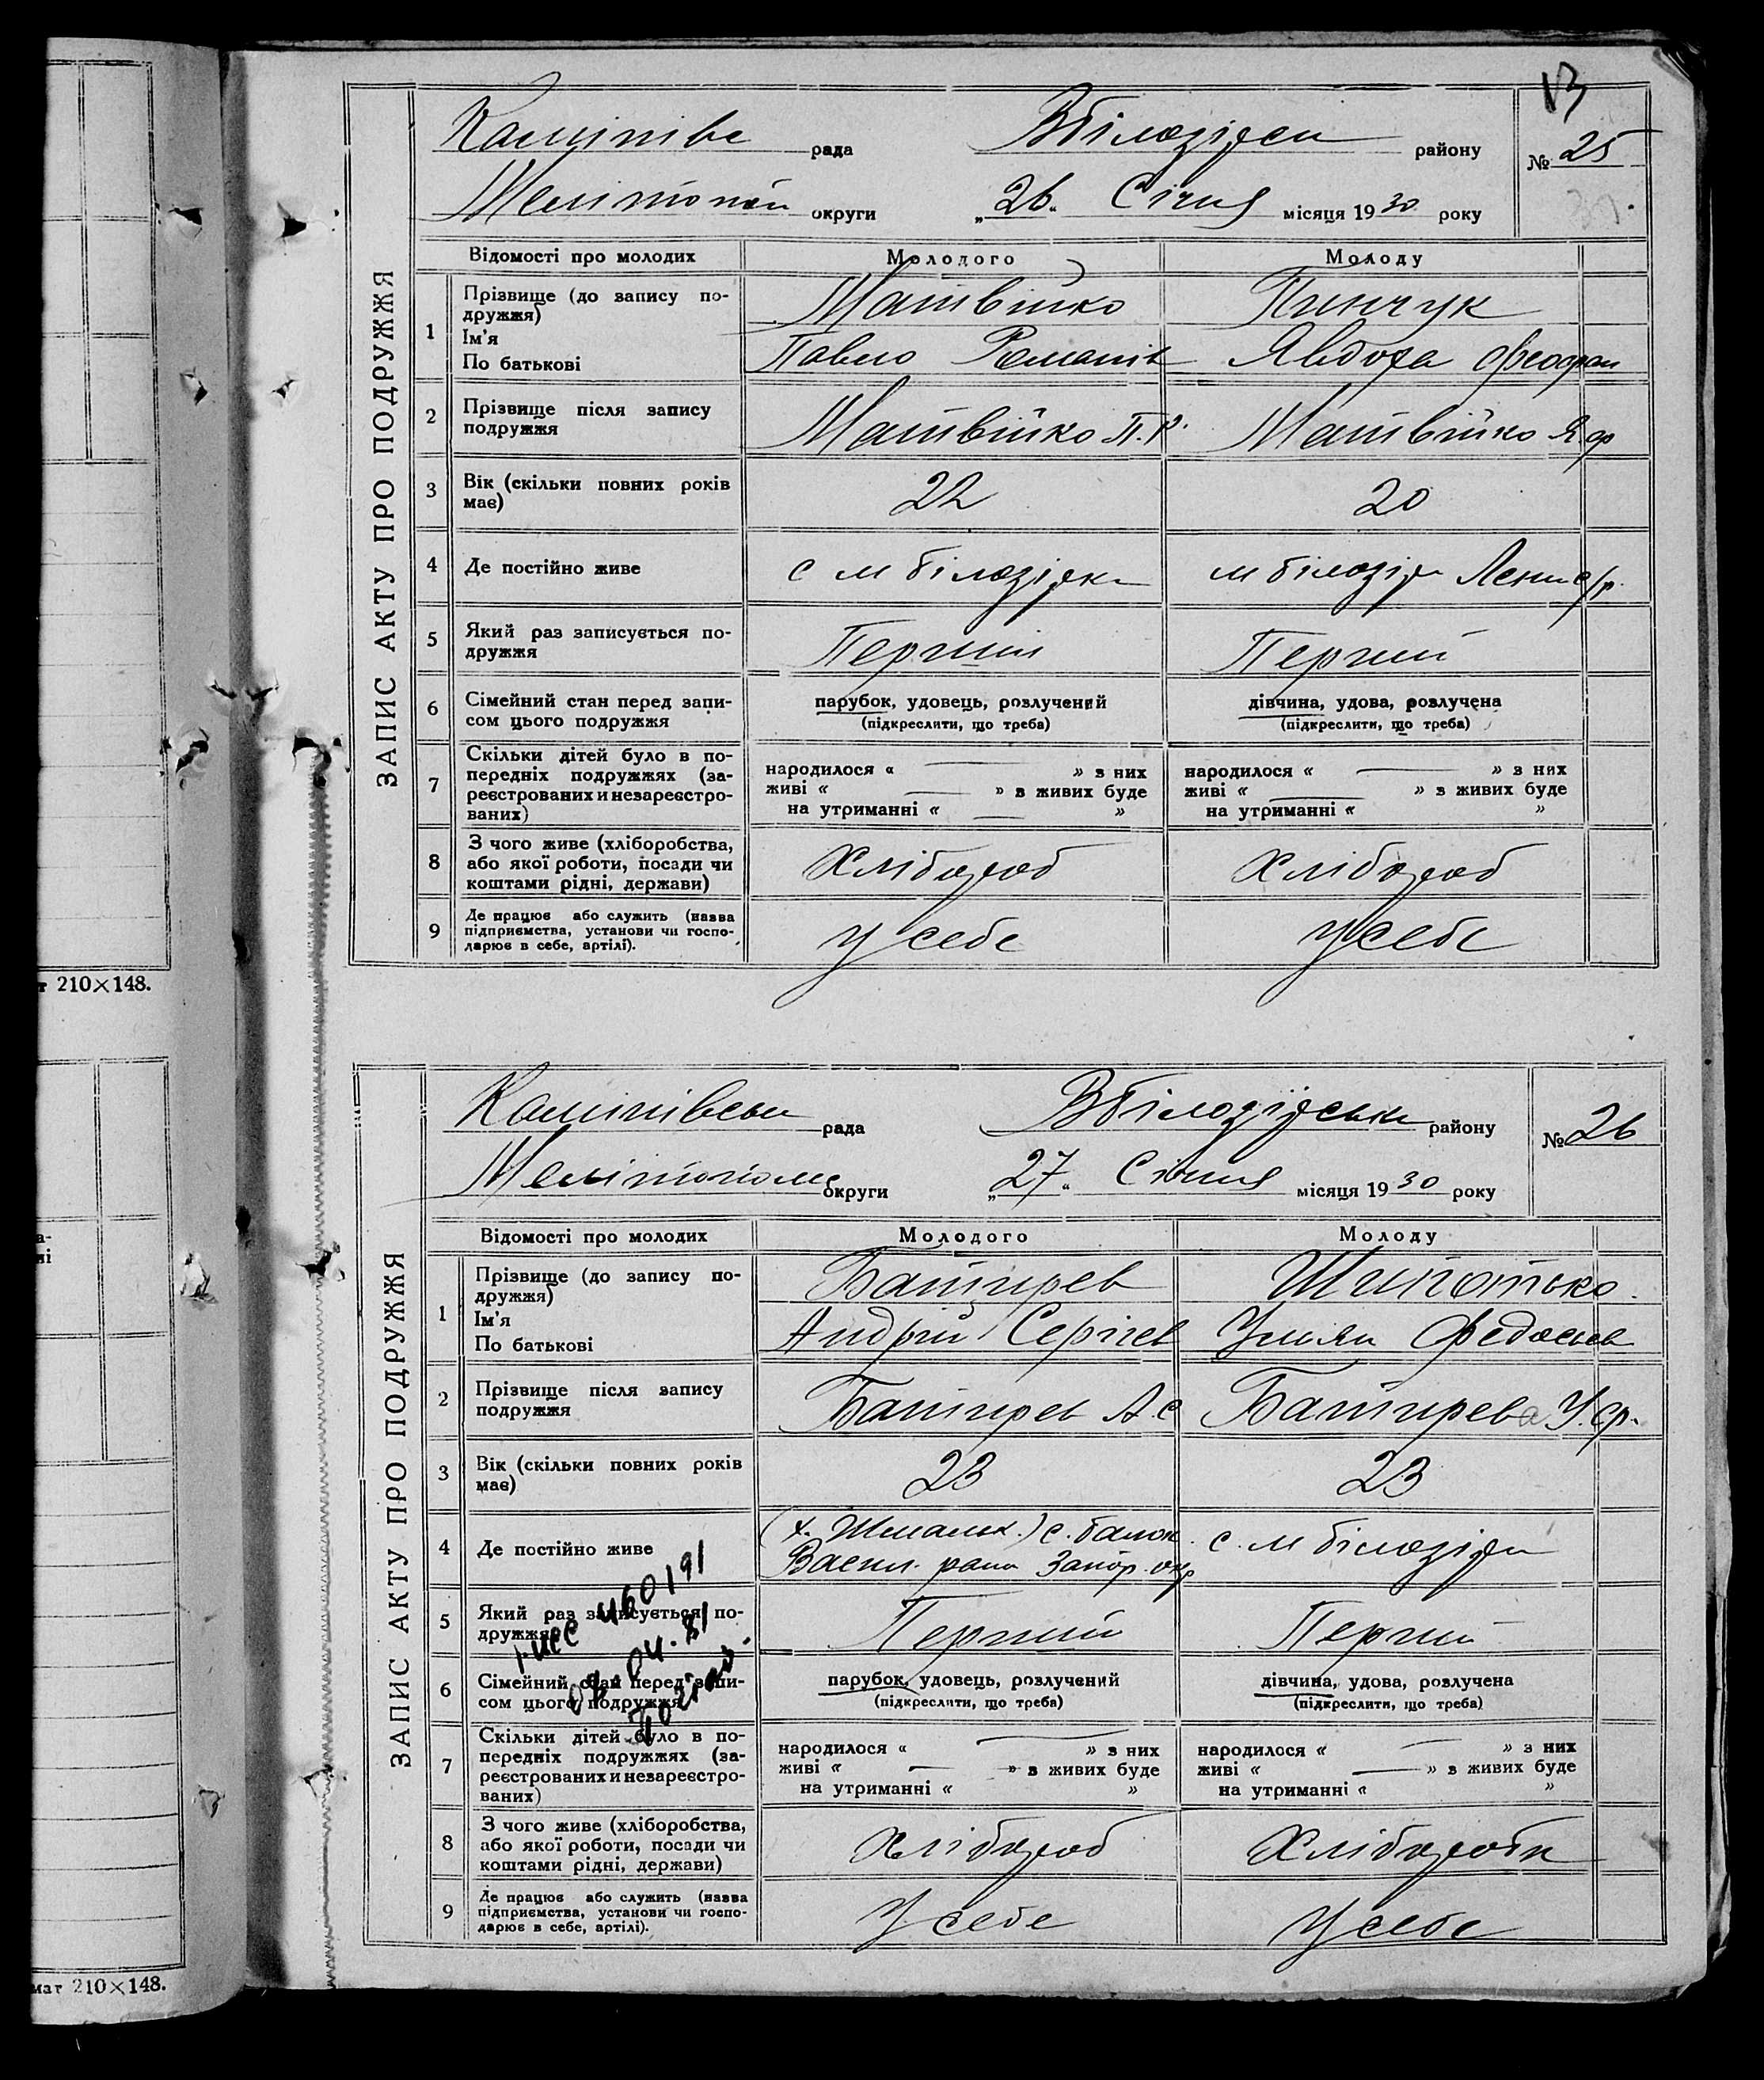 т 210×148.
мат 210×148.
13
ЗАПИС АКТУ ПРО ПОДРУЖЖЯ
рада ВБілозірси району № 25
Мелітопол округи „26“ Січня місяця 1930 року
Відомості про молодих Молодого Молоду
1 Прізвище (до запису по-
дружжя) Матвійко Пинчук
Ім'я
По батькові Павло Романів Явдоха Феофан
2 Прізвище після запису
подружжя Матвійко П.Р. Матвійко Я.Ф
3 Вік (скільки повних років
має) 22 20
4 Де постійно живе с м білозірки м білозір Ленин с/р.
5 Який раз записується по-
дружжя Перший Перший
6 Сімейний стан перед запи-
сом цього подружжя
парубок, удовець, розлучений дівчина, удова, розлучена
(підкреслити, що треба) (підкреслити, що треба)
7 Скільки дітей було в по-
передніх подружжях (за-
реєстрованих и незареєстро-
ваних)
народилося « — » з них народилося « — » з них
живі « — » в живих буде живі « — » з живих буде
на утриманні « — » на утриманні « »
8 З чого живе (хліборобства,
або якої роботи, посади чи
коштами рідні, держави) Хлібороб Хлібороб
9 Де працює або служить (назва
підприємства, установи чи госпо-
дарює в себе, артілі). У себе У себе
ЗАПИС АКТУ ПРО ПОДРУЖЖЯ
рада ВБілозірськи району № 26
Мелітополь округи „27“ Січня місяця 1930 року
Відомості про молодих Молодого Молоду
1 Прізвище (до запису по-
дружжя) Батирев Шипотько
Ім'я
По батькові Андрій Сергієв Улиян Федосьев
2 Прізвище після запису
подружжя Батирев А.С Батирева У.Ф.
3 Вік (скільки повних років
має) 23 23
4 Де постійно живе (х. Шмальк.) с. балок. с. м білозірки
Васил. рано Запор. окр
5 Який раз записується по-
дружжя Перший Перший
460191
04.81
6 Сімейний стан перед запи-
сом цього подружжя
парубок, удовець, розлучений дівчина, удова, розлучена
(підкреслити, що треба) (підкреслити, що треба)
7 Скільки дітей було в по-
передніх подружжях (за-
реєстрованих и незареєстро-
ваних)
народилося « — » з них народилося « — » з них
живі « — » в живих буде живі « — » в живих буде
на утриманні « » на утриманні « »
8 З чого живе (хліборобства,
або якої роботи, посади чи
коштами рідні, держави) Хлібороб Хлібороби
9 Де працює або служить (назва
підприємства, установи чи госпо-
дарює в себе, артілі). У себе У себе